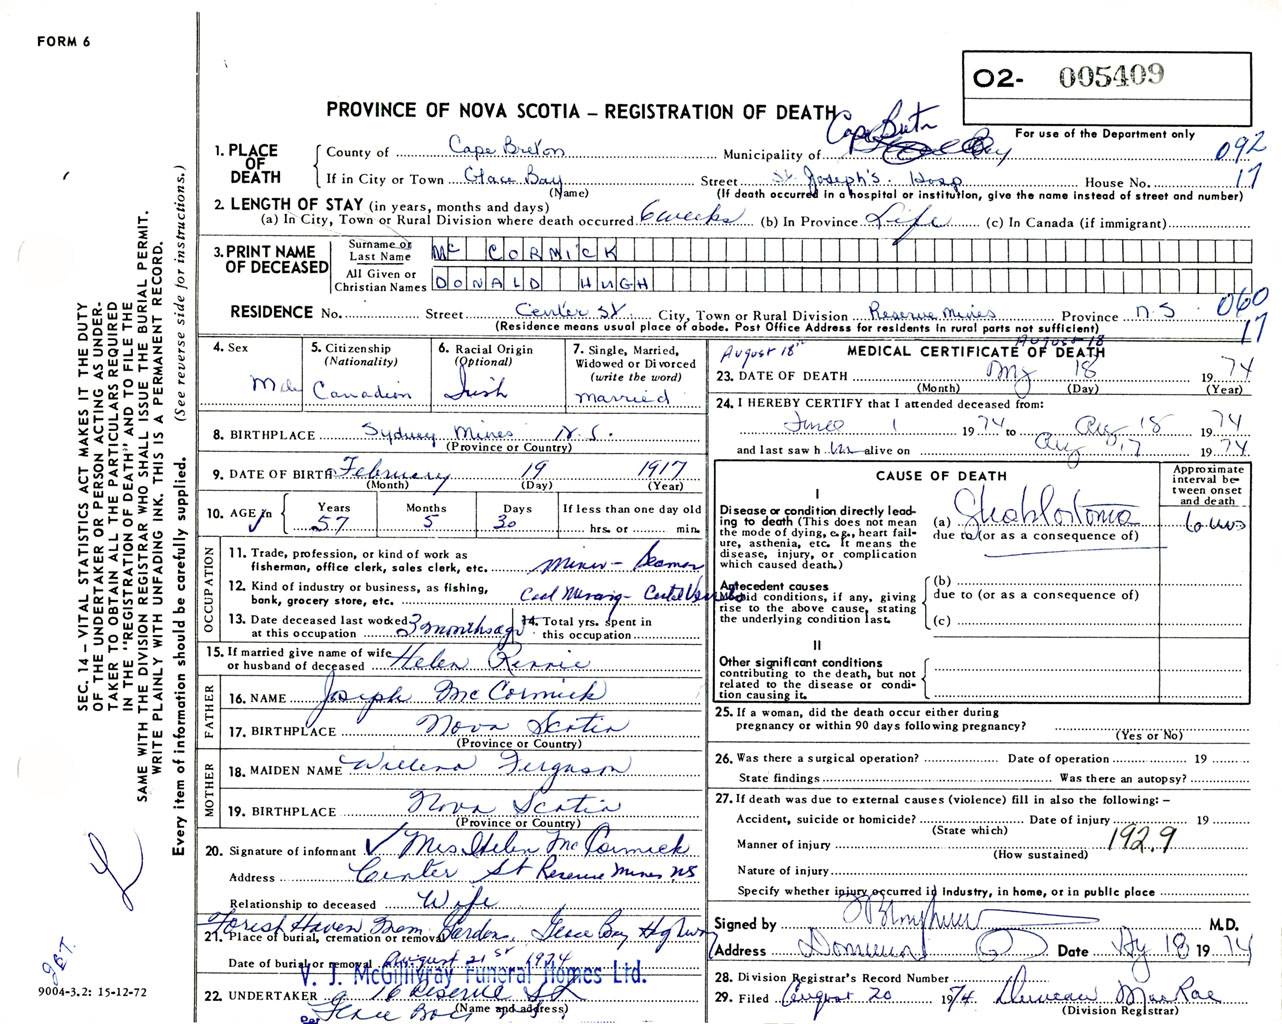 FORM 6
O2- 005409
PROVINCE OF NOVA SCOTIA – REGISTRATION OF DEATH
For use of the Department only
Cape Breton
1. PLACE OF DEATH
County of Cape Breton Municipality of 092
If in City or Town Glace Bay Street St. Joseph's. Hosp House No. 17
(Name) (If death occurred in a hospital or institution, give the name instead of street and number)
2. LENGTH OF STAY (in years, months and days)
(a) In City, Town or Rural Division where death occurred 6 weeks (b) In Province Life (c) In Canada (if immigrant)
3. PRINT NAME OF DECEASED
Surname or Last Name Mc CORMICK
All Given or Christian Names DONALD HUGH
RESIDENCE No. Street Center St. City, Town or Rural Division Reserve Mines Province N.S. 060
(Residence means usual place of abode. Post Office Address for residents in rural parts not sufficient) 17
4. Sex
Male
5. Citizenship
(Nationality)
Canadian
6. Racial Origin
(Optional)
Irish
7. Single, Married,
Widowed or Divorced
(write the word)
Married
8. BIRTHPLACE Sydney Mines N.S.
(Province or Country)
9. DATE OF BIRTH February 19 1917
(Month) (Day) (Year)
10. AGE in Years Months Days If less than one day old
57 5 30 hrs. or min.
OCCUPATION
11. Trade, profession, or kind of work as
fisherman, office clerk, sales clerk, etc. Miner – Seaman
12. Kind of industry or business, as fishing,
bank, grocery store, etc. Coal Mining –
13. Date deceased last worked
at this occupation 3 months ago
14. Total yrs. spent in
this occupation
15. If married give name of wife
or husband of deceased Helen Rennie
FATHER
16. NAME Joseph McCormick
17. BIRTHPLACE Nova Scotia
(Province or Country)
MOTHER
18. MAIDEN NAME Willena Ferguson
19. BIRTHPLACE Nova Scotia
(Province or Country)
20. Signature of informant Mrs Helen McCormick
Address Center St Reserve Mines NS
Relationship to deceased Wife
Forest Haven Mem Gardens, Glace Bay Highway
21. Place of burial, cremation or removal
Date of burial or removal August 21st 1974
V. J. McGillivray Funeral Homes Ltd.
22. UNDERTAKER 16 Reserve St
(Name and address)
per Glace Bay
August 18th
MEDICAL CERTIFICATE OF DEATH
August 18
23. DATE OF DEATH 18 1974
(Month) (Day) (Year)
24. I HEREBY CERTIFY that I attended deceased from:
June 1 1974 to Aug 18 1974
and last saw h im alive on Aug 17 1974
CAUSE OF DEATH
Approximate interval between onset and death
I
Disease or condition directly leading to death (This does not mean the mode of dying, e.g., heart failure, asthenia, etc. It means the disease, injury, or complication which caused death.)
(a)
due to (or as a consequence of)
Antecedent causes
Morbid conditions, if any, giving rise to the above cause, stating the underlying condition last.
(b)
due to (or as a consequence of)
(c)
II
Other significant conditions contributing to the death, but not related to the disease or condition causing it.
25. If a woman, did the death occur either during
pregnancy or within 90 days following pregnancy?
(Yes or No)
26. Was there a surgical operation? Date of operation 19
State findings Was there an autopsy?
27. If death was due to external causes (violence) fill in also the following: –
Accident, suicide or homicide? Date of injury 19
(State which)
Manner of injury 192.9
(How sustained)
Nature of injury
Specify whether injury occurred in industry, in home, or in public place
Signed by M.D.
Address Dominion Date Aug 18 1974
28. Division Registrar's Record Number
29. Filed August 20 1974 Duncan MacRae
(Division Registrar)
SEC. 14 – VITAL STATISTICS ACT MAKES IT THE DUTY
OF THE UNDERTAKER OR PERSON ACTING AS UNDER-
TAKER TO OBTAIN ALL THE PARTICULARS REQUIRED
IN THE "REGISTRATION OF DEATH" AND TO FILE THE
SAME WITH THE DIVISION REGISTRAR WHO SHALL ISSUE THE BURIAL PERMIT.
WRITE PLAINLY WITH UNFADING INK. THIS IS A PERMANENT RECORD.
Every item of information should be carefully supplied. (See reverse side for instructions.)
9004-3.2: 15-12-72